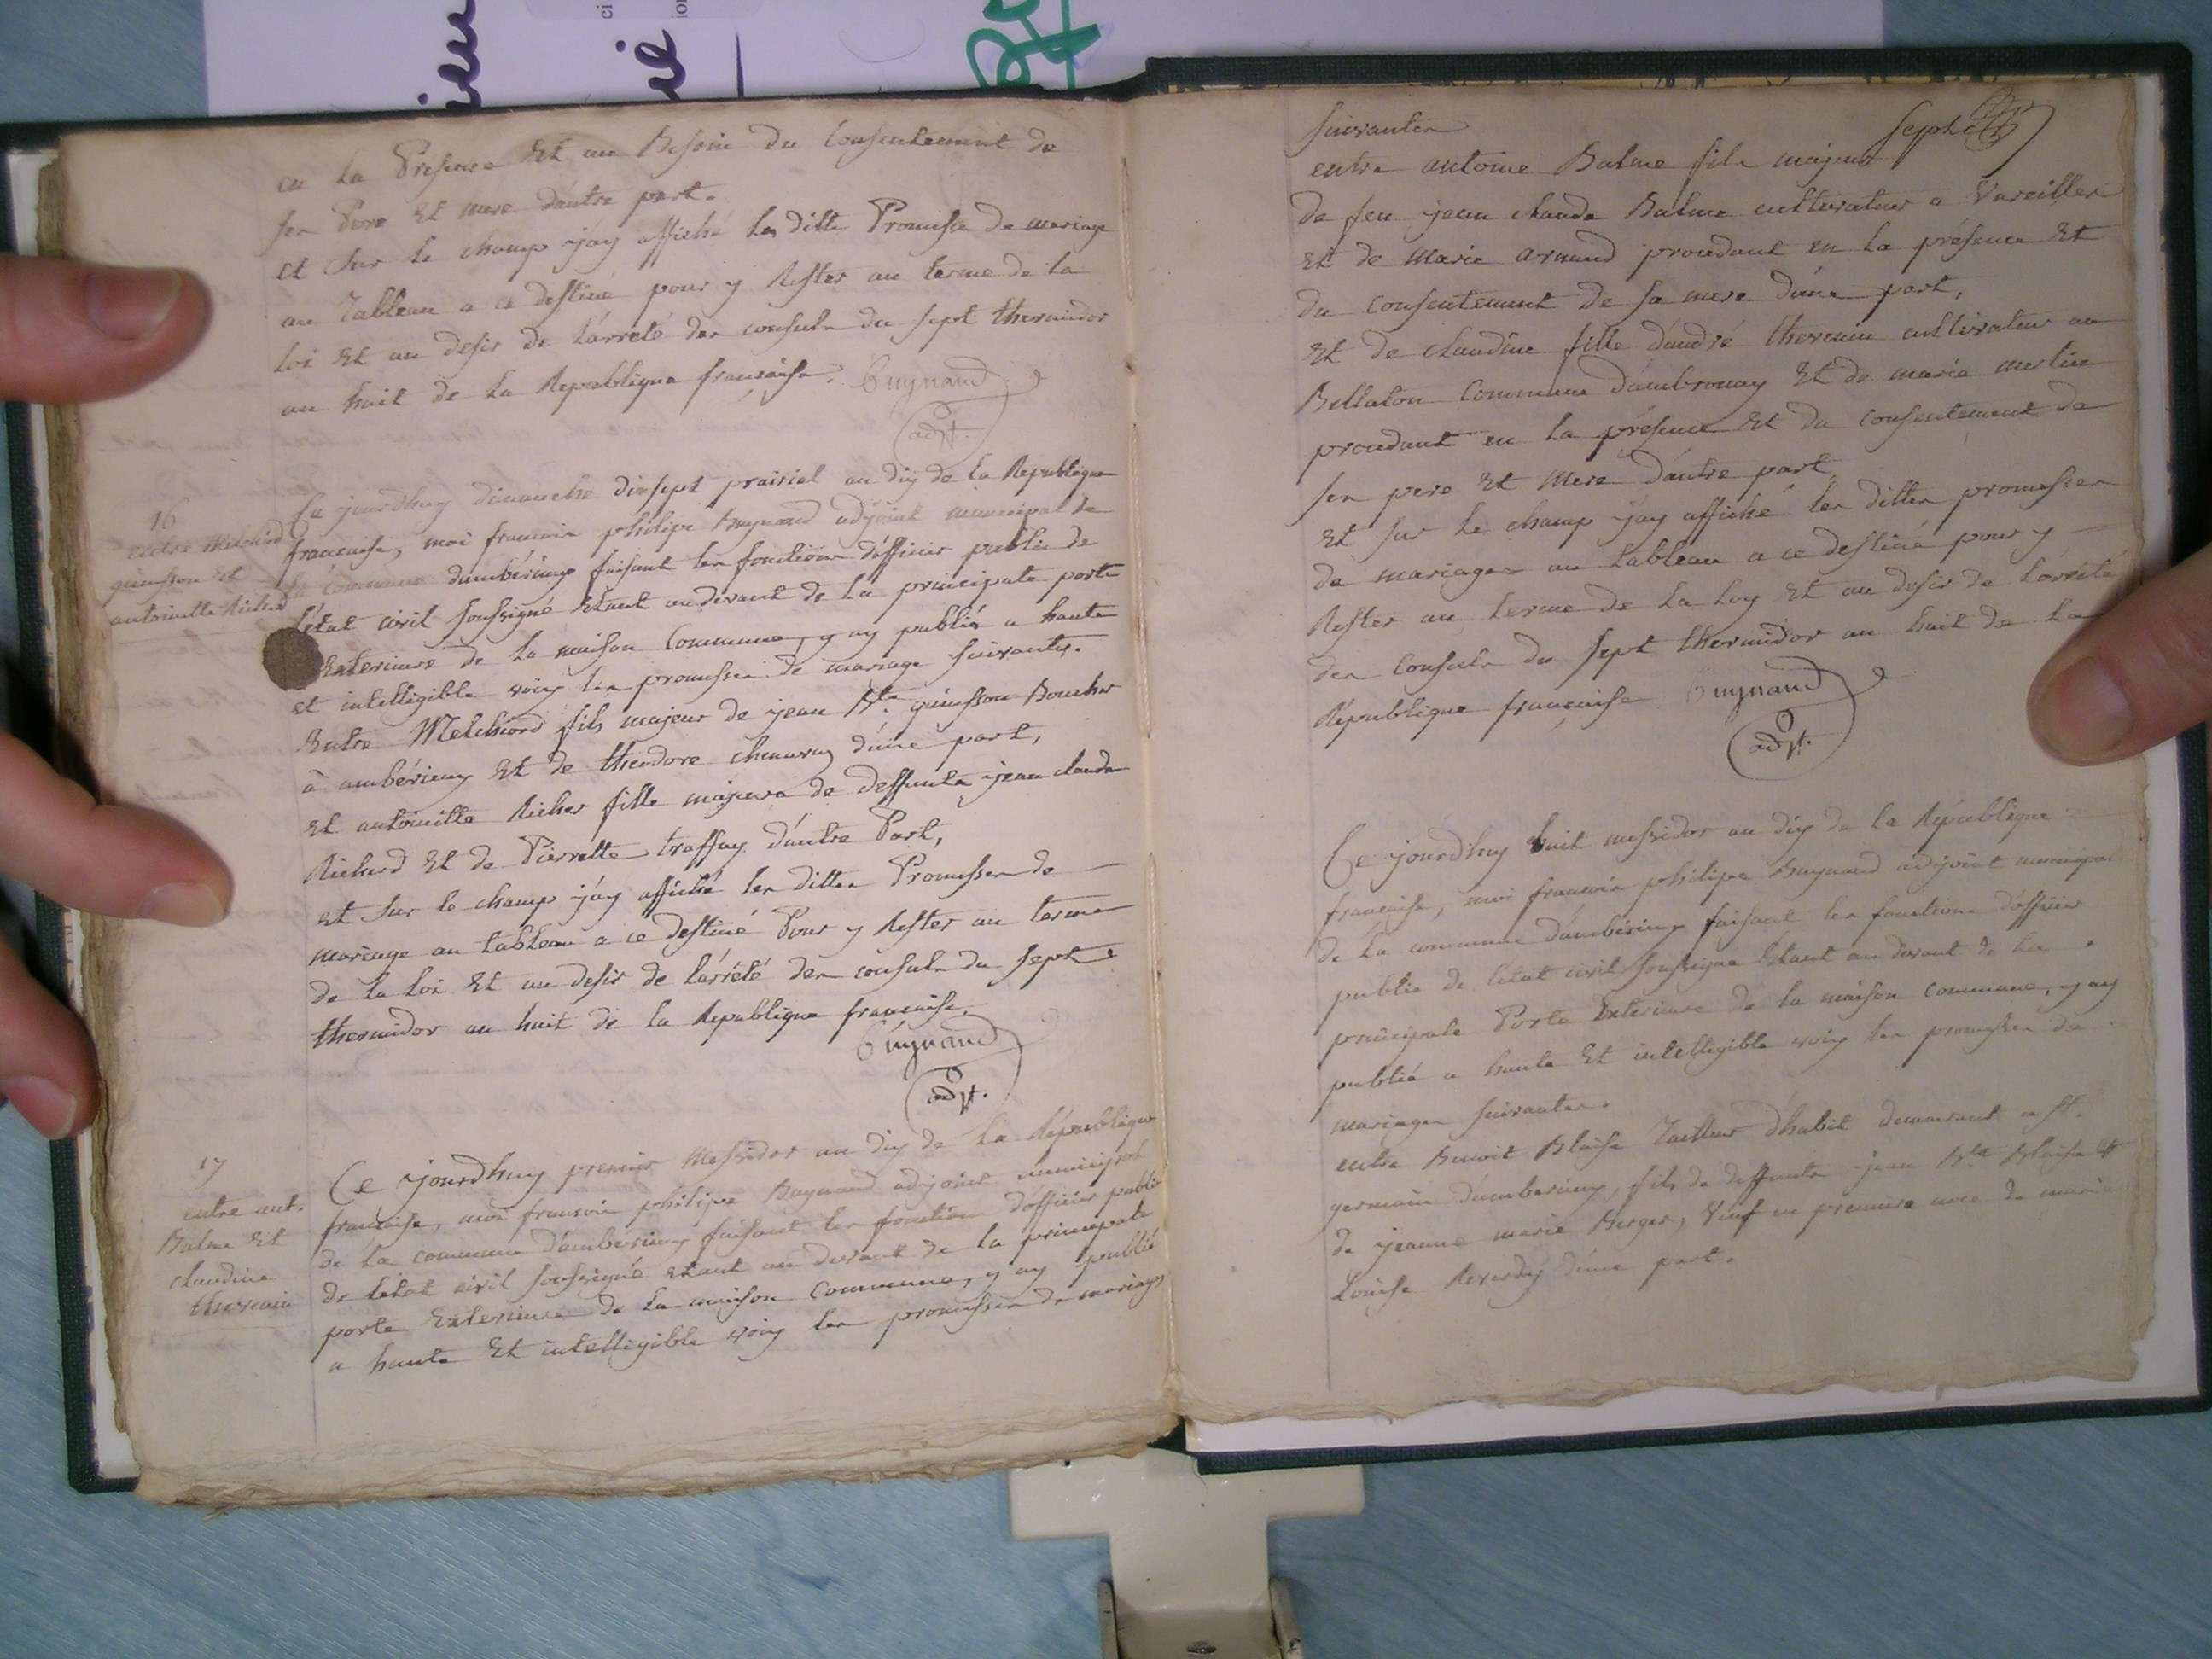 en la Presence Et au Besoin du Consentement de
ses Pere Et mere d'autre part.
et sur le champ j'ay affiché les ditte Promesse de mariage
au Tableau a ce destiné pour y Rester au terme de la
loi Et au desir de l'arrété des consuls du sept thermidor
an huit de la Republique française. Guynand
adjt.
16
entre Melchiord
guinsson Et
antoinette Richerd
Ce jourdhuy dimanche dixsept prairial an dix de la Republique
française, moi francois philipe Guynand adjoint municipal de
la commune dambérieux faisant les fonctions d'officier public de
l'état civil soussigné Etant audevant de la principale porte
Exterieure de la maison Commune, y ay publié a haute
et intelligible voix les promesses de mariage suivantes.
Entre Melchiord fils majeur de jean Bte. guinsson Boucher
à ambérieux Et de theodore chenavaz d'une part,
Et antoinette Richer fille majeure de deffunts jean claude
Richerd Et de Pierrette traffay d'autre Part,
et sur le champ j'ay affiché les dittes Promesses de
mariage au tableau a ce destiné Pour y Rester au terme
de la loi Et au desir de l'arrété des consuls du sept
thermidor an huit de la Republique française.
Guynand
adjt.
17
entre ant.
Balme Et
claudine
thevenin
Ce jourdhuy premier Messidor an dix de la République
française, moi francois philipe Guynand adjoint municipal
de la commune d'amberieux faisant les fonctions d'officier public
de l'etat civil soussigné etant au devant de la principale
porte Exterieure de la maison Commune, y ay publié
a haute Et intelligible voix les promesses de mariages
suivantes
entre antoine Balme fils majeur
de feu jean claude Balme cultivateur a Vareilles
Et de Marie Arnaud procedant en la présence Et
du Consentement de sa mere d'une part,
Et de claudine fille d'andré thevenin cultivateur au
Bellaton Commune d'ambronay Et de marie merlin
procedant en la présence Et du Consentement de
ses pere Et Mere d'autre part,
Et sur le champ j'ay affiché les dittes promesses
de mariages au tableau a ce destiné pour y
Rester au terme de la Loy Et au desir de l'arrété
des Consuls du sept thermidor an huit de la
République française Guynand
adjt.
Ce jourdhuy huit messidor an dix de la République
française, moi francois philipe Guynand adjoint municipal
de la commune d'ambérieux faisant les fonctions d'officier
public de l'etat civil soussigné Etant au devant de la
principale Porte Exterieure de la maison commune, y ay
publié a haute Et intelligible voix les promesses de
mariages suivantes.
entre Benoit Blaise Tailleur d'habit demeurant a St.
germain d'amberieux, fils de deffunts jean Bte Blaise Et
de jeanne marie Berger, Veuf en premiere noce de marie
Louise Reverdy d'une part.